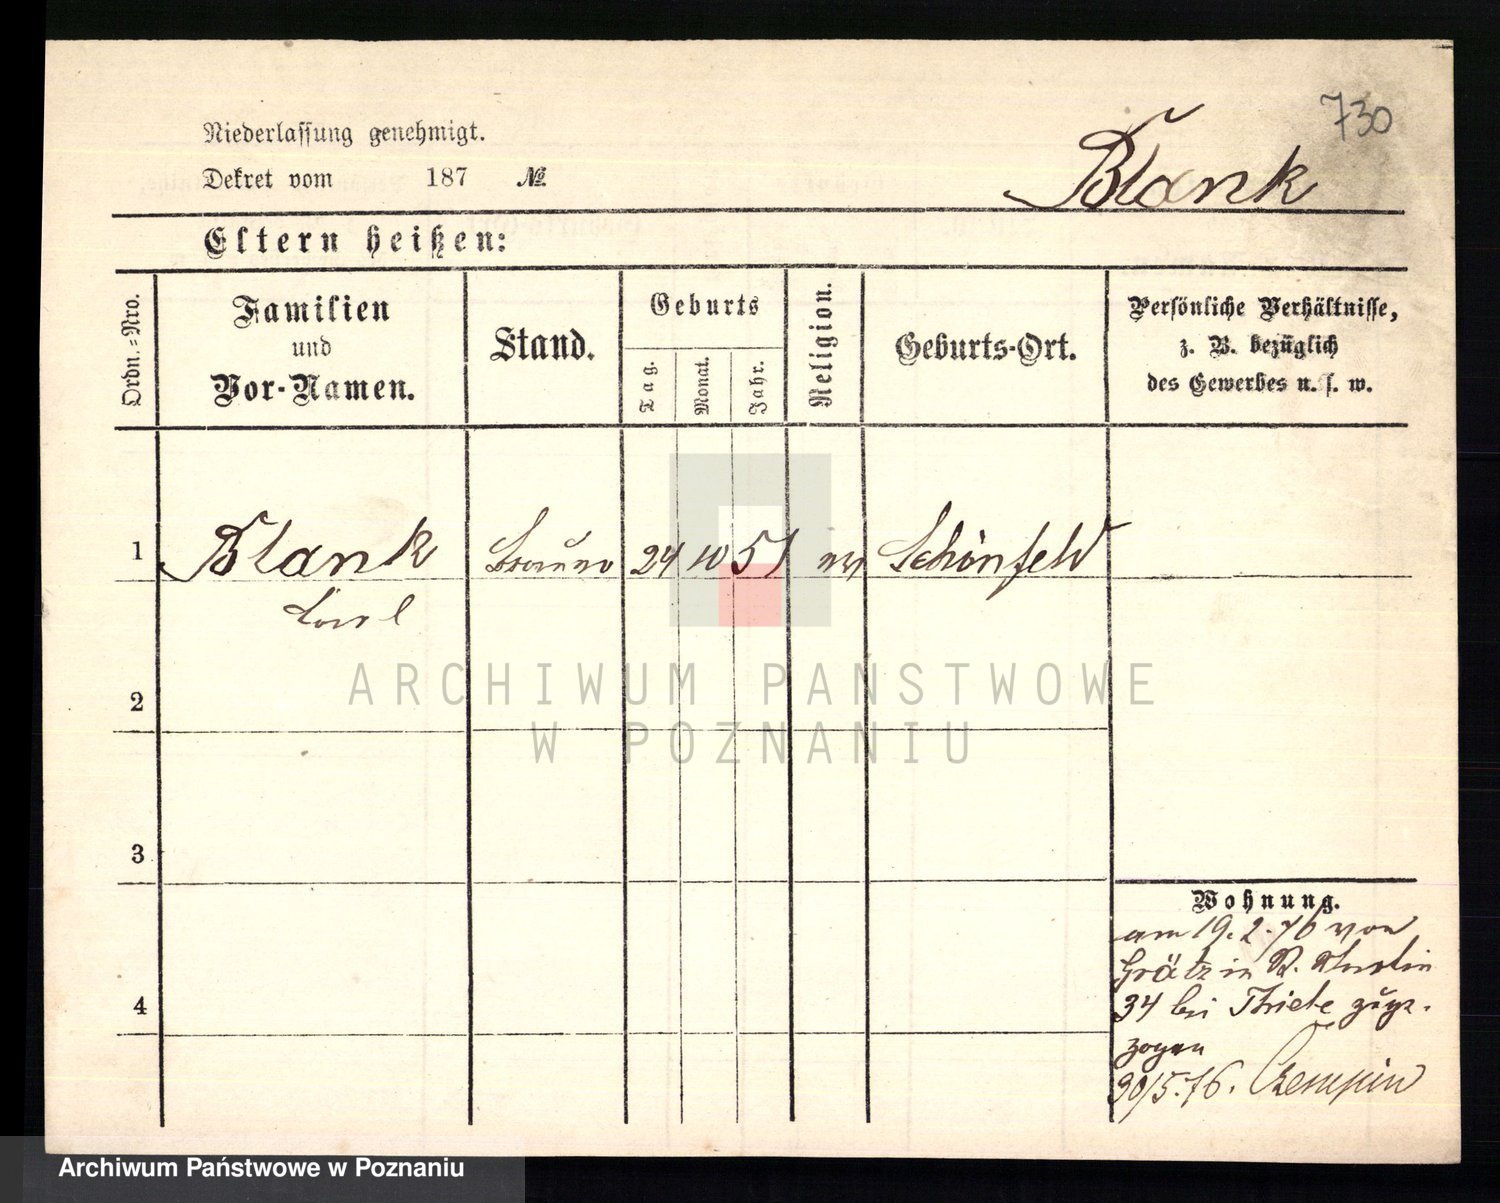 730
Niederlassung genehmigt.
Dekret vom 187 №
Blank
Eltern heißen:
Ordn.-Nro.
Familien
und
Vor-Namen.
Stand.
Geburts
Tag.
Monat.
Jahr.
Religion.
Geburts-Ort.
Persönliche Verhältnisse,
z. B. bezüglich
des Gewerbes u. s. w.
1 Blank 24 10 51 Schönfeld
Carl
2
3
4
Wohnung.
am 19. 2. 76 von
Grätz in St. Martin
34 bei Thiele zuge-
zogen
30/5.76.
ARCHIWUM PAŃSTWOWE
W POZNANIU
Archiwum Państwowe w Poznaniu